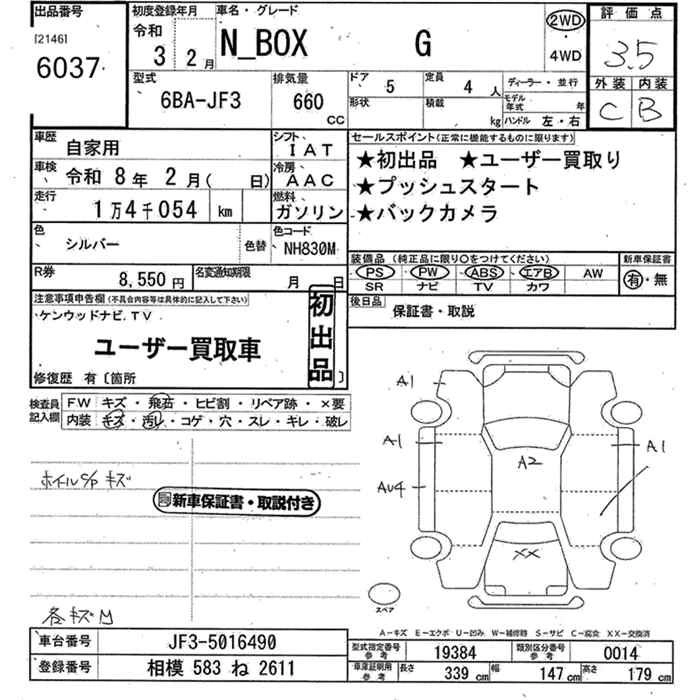 出品番号
[2146]
6037
初度登録年月
令和
3 2月
車名・グレード
N_BOX G
2WD
・
4WD
評価点
3.5
外装 内装
C B
型式
6BA-JF3
排気量
660
CC
ドア 5
形状
定員 4 人
積載 kg
ディーラー・並行
モデル年式 年
ハンドル 左・右
車歴
自家用
シフト
IAT
車検
令和 8年 2月( 日)
冷房
AAC
走行
1万4千054 km
燃料
ガソリン
色
シルバー
色替
色コード
NH830M
R券
8,550円
名変通知期限
月 日
セールスポイント(正常に機能するものに限ります)
★初出品 ★ユーザー買取り
★プッシュスタート
★バックカメラ
装備品(純正品に限り○をつけてください)
PS ・ PW ・ ABS ・ エアB ・ AW
SR ナビ TV カワ
新車保証書
有・無
後日品
保証書・取説
注意事項申告欄(不具合内容等は具体的に記入して下さい)
ケンウッドナビ,TV
ユーザー買取車
初出品
修復歴 有〔箇所 〕
検査員
記入欄
FW キズ・飛石・ヒビ割・リペア跡・×要
内装 キズ・汚れ・コゲ・穴・スレ・キレ・破レ
ホイルC/P キズ
新車保証書・取説付き
各キズ
A1
A1
AU4
A2
A1
XX
スペア
A-キズ E-エクボ U-凹み W-補修跡 S-サビ C-腐食 XX-交換済
車台番号
JF3-5016490
登録番号
相模 583 ね 2611
型式指定番号
参考
19384
類別区分番号
参考
0014
車庫証明用
参考
長さ 339 cm 幅 147 cm 高さ 179 cm